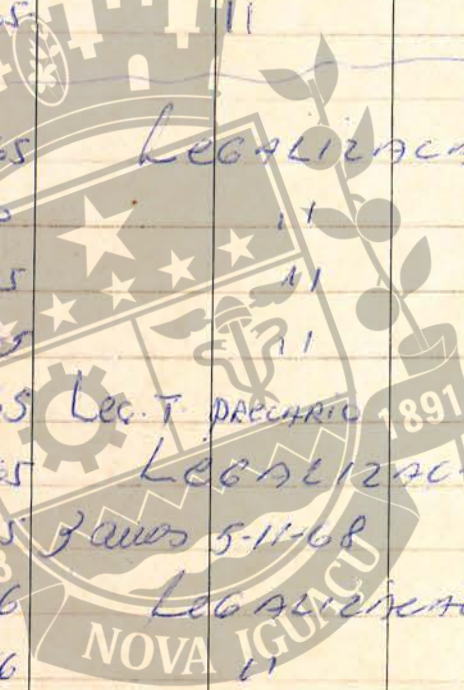 5 11
65 LEGALIZAC
11
5 11
5 11
5 Leg. T. PRECARIO 1891
65 LEGALIZAC
5 3 anos 5-11-68
6 LEGALIZACAO
6 11
NOVA IGUAÇU